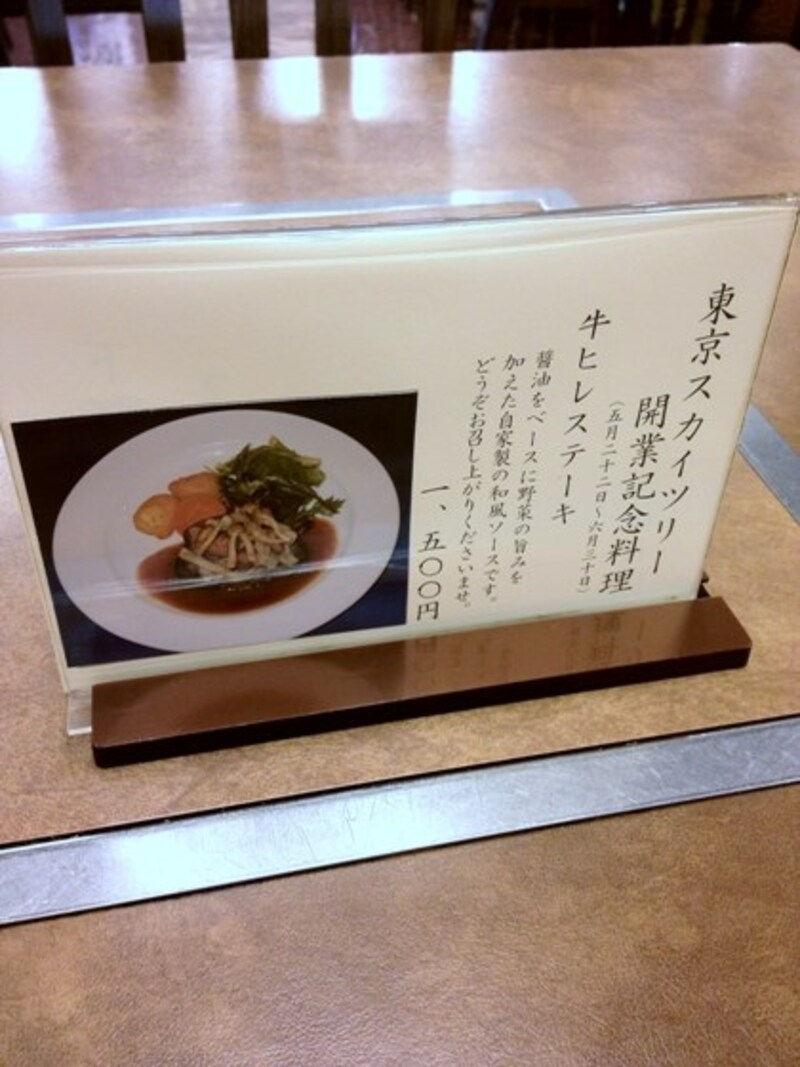 東京スカイツリー
開業記念料理
（五月二十二日～六月三十日）
牛ヒレステーキ
醤油をベースに野菜の旨みを
加えた自家製の和風ソースです。
どうぞお召し上がりくださいませ。
一、五〇〇円